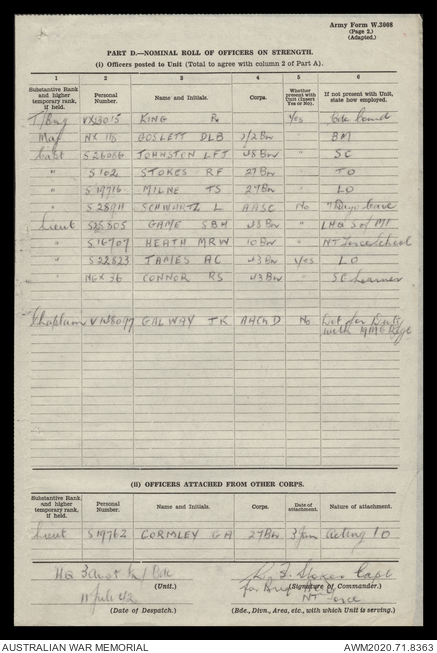 Army Form W.3008
(Page 2.)
(Adapted.)
PART D.—NOMINAL ROLL OF OFFICERS ON STRENGTH.
(i) Officers posted to Unit (Total to agree with column 2 of Part A).
1 2 3 4 5 6
Substantive Rank and higher temporary rank, if held. Personal Number. Name and Initials. Corps. Whether present with Unit (Insert Yes or No). If not present with Unit, state how employed.
T/Brig VX13015 KING R Yes Bde Comd
Maj NX 115 GOSLETT DLB 2/2 Bn " BM
Capt S26066 JOHNSTON LFJ 48 Bn " SC
" S 102 STOKES RF 27 Bn " TO
" S 19716 MILNE TS 27 Bn " LO
" S 28911 SCHWARTZ L AASC No 7 Days leave
Lieut GAME SBH 43 Bn " LHQ S of MI
" S 16707 HEATH MRW 10 Bn " NT Force School
" S 22823 JAMES AC 43 Bn Yes LO
" NGX 36 CONNOR RS 43 Bn SC Learner
Chaplain GALWAY TK AACh D No Det for Duty
with AMG Regt
(II) OFFICERS ATTACHED FROM OTHER CORPS.
Substantive Rank and higher temporary rank, if held. Personal Number. Name and Initials. Corps. Date of attachment. Nature of attachment.
Lieut S19762 GORMLEY GA 27 Bn 3 Jan acting IO
HQ 3 Aust Inf Bde
(Unit.)
R. F. Stokes Capt
(Signature of Commander.)
for Brig
NT Force
11 July 42
(Date of Despatch.)
(Bde., Divn., Area, etc., with which Unit is serving.)
AUSTRALIAN WAR MEMORIAL
AWM2020.71.8363